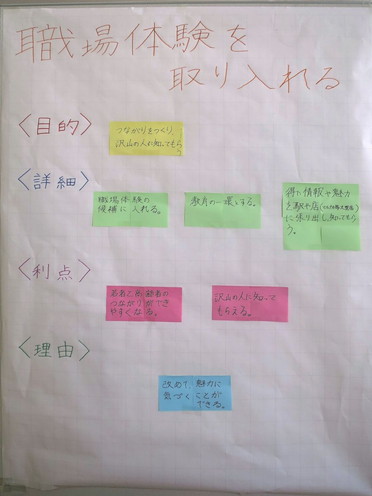 職場体験を
取り入れる
〈目的〉
つながりをつくり、
沢山の人に知ってもら
う
〈詳細〉
職場体験の
候補に入れる。
教育の一環とする。
得た情報や魅力
を駅や店
に張り出し知ってもら
う。
〈利点〉
若者と高齢者に
つながりができ
やすくなる。
沢山の人に知って
もらえる。
〈理由〉
改めて魅力に
気づくことが
できる。